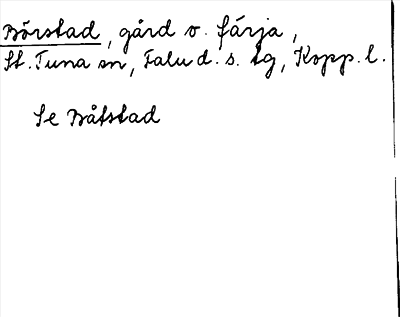 Börstad, gård o. färja,
St. Tuna sn, Falu d. s. tg, Kopp. l.
Se Båtstad